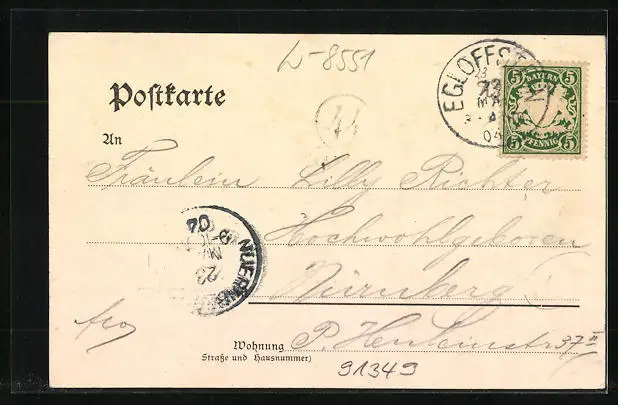 W-8551
EGLOFFS
23
MA
04
5 BAYERN 5
5 PFENNIG 5
Postkarte
44
An
Fräulein Lilly Richter
Hochwohlgeboren
Nürnberg
NUERNB
23
04
Wohnung
Straße und Hausnummer)
P. Henleinstr 37 II
91349